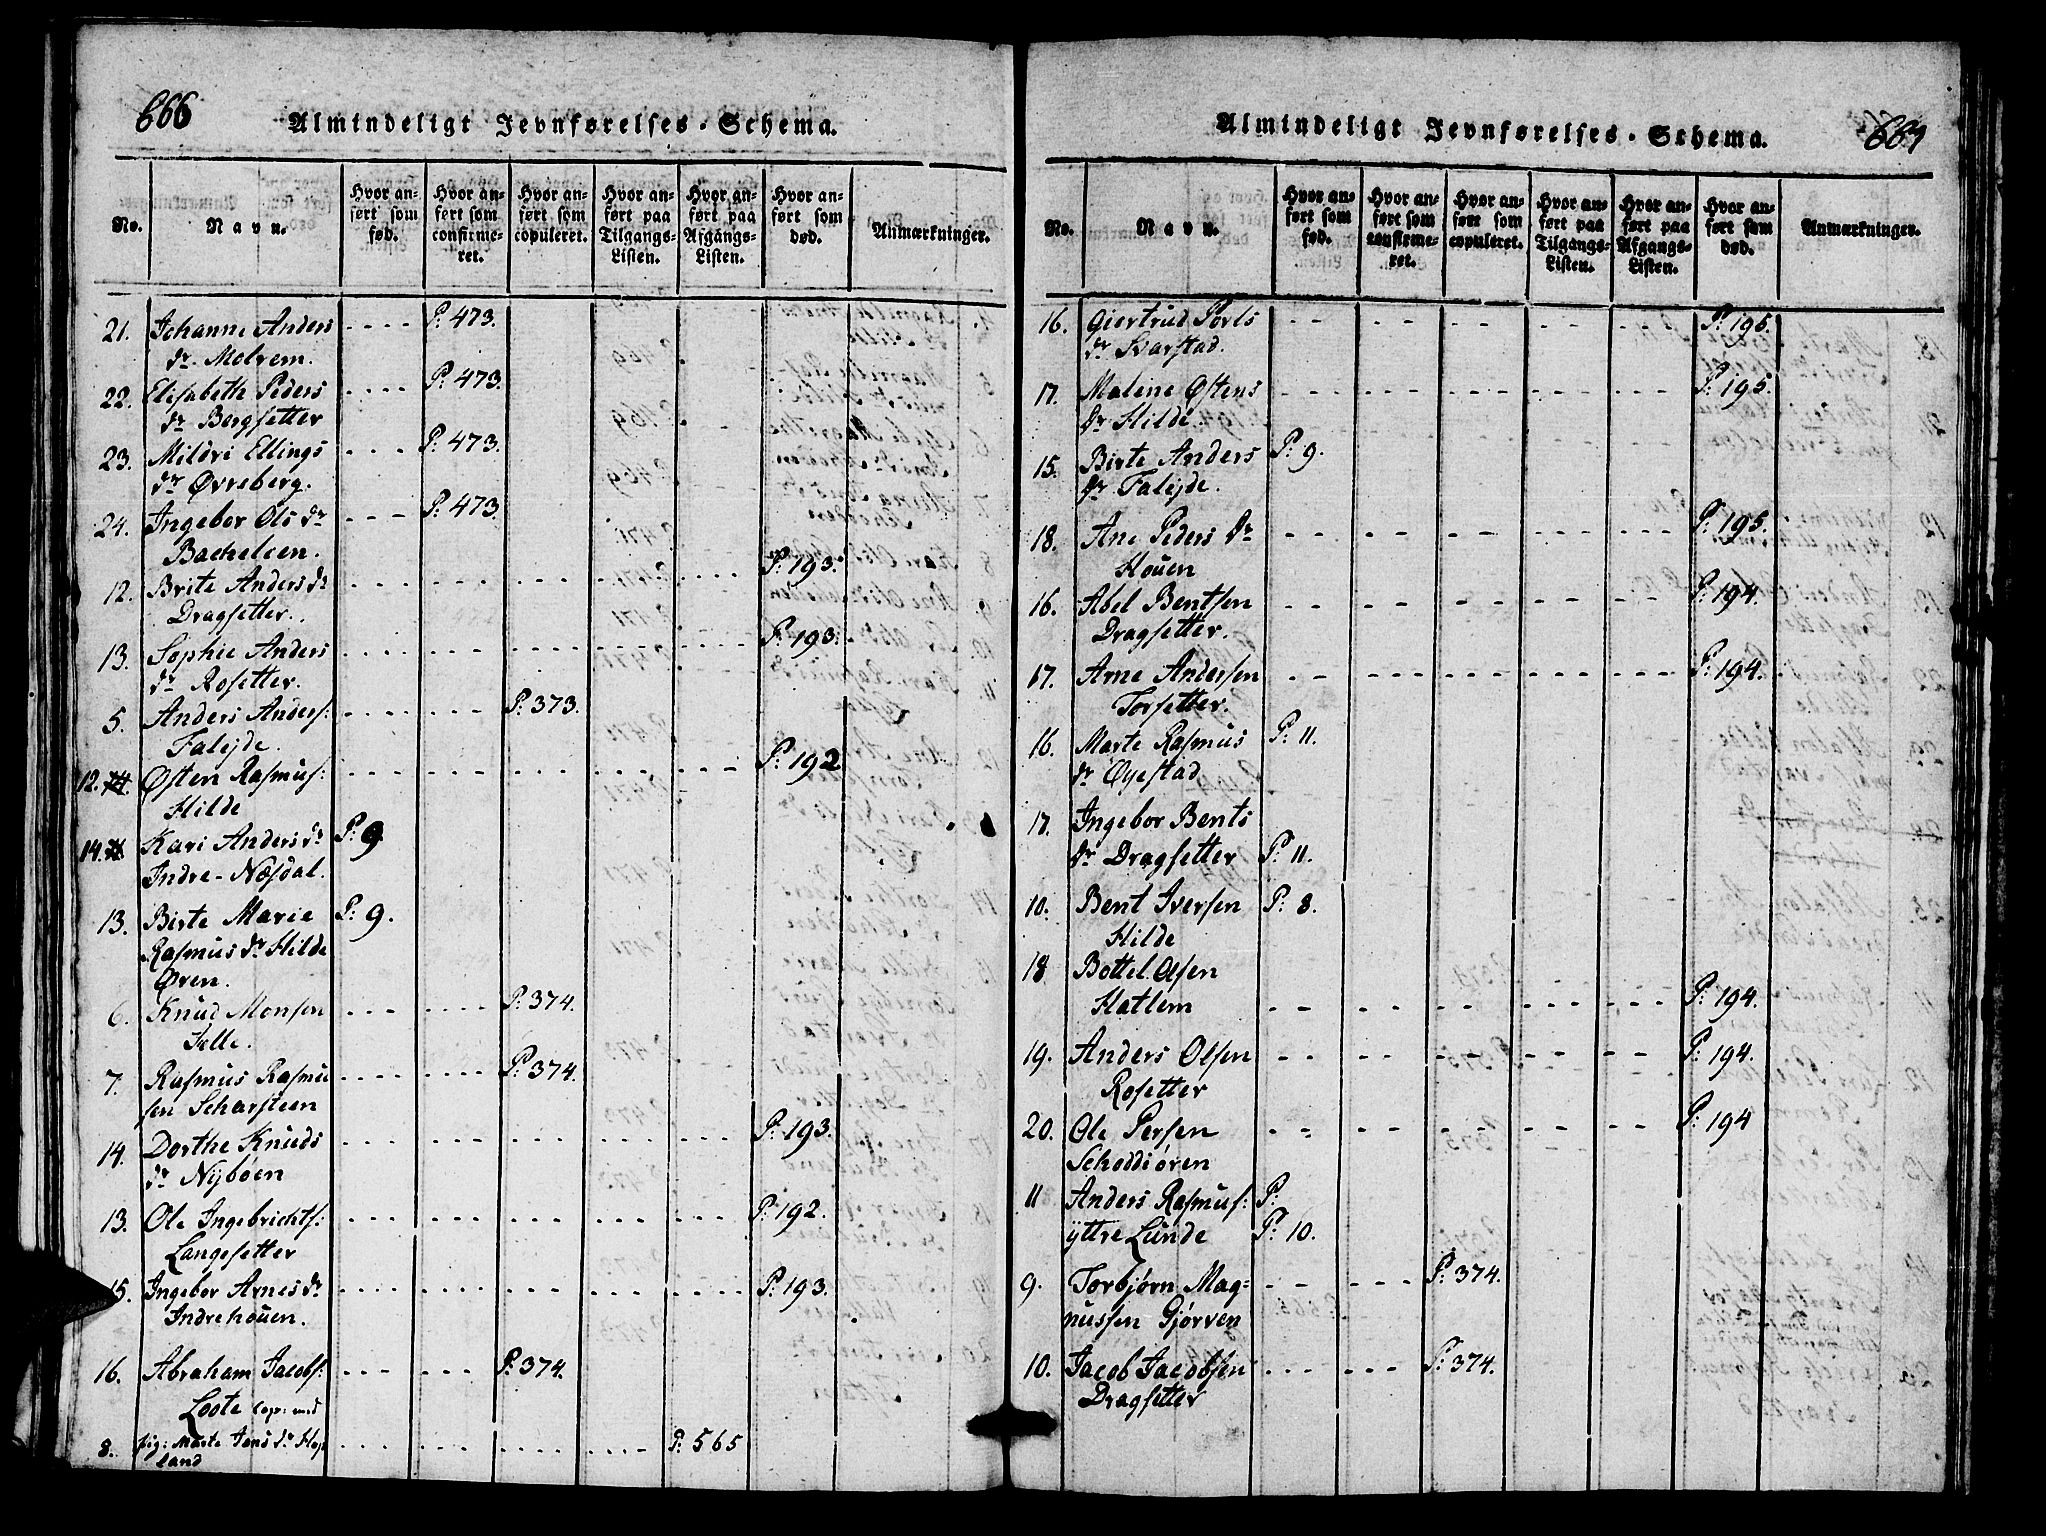 666
Almindeligt Jevnførelses-Schema.
No.
Navn.
Hvor anført som fød.
Hvor anført som confirmeret.
Hvor anført som copuleret.
Hvor anført paa Tilgangs-Listen.
Hvor anført paa Afgangs-Listen.
Hvor anført som død.
Anmærkninger.
21. Johanne Anders P. 473.
dr. Melvem.
22. Elisabeth Peders P. 473.
dr Bergsetter
23. Mildri Ellings P. 473.
dr Øvreberg.
24. Ingebor Ols dr P. 473.
Bacheleen.
12. Brite Anders dr P. 193.
Dragsetter.
13. Sophie Anders P. 193.
dr Rosetter.
5. Anders Anders: P. 373.
Faleide.
12. Østen Rasmus: P. 192
Hilde
14. Kari Anders dr P. 9
Indre-Næsdal.
13. Birte Marie P. 9.
Rasmus dr Hilde
Øren.
6. Knud Monsen P. 374.
7. Rasmus Rasmu P. 374.
sen Scharsteen
14. Dorthe Knuds P. 193.
dr Nijbøen
13. Ole Ingebrichts: P. 192.
Langesetter
15. Ingebor Arnes dr P. 193.
Indrehouen.
16. Abraham Jacobs: P. 374.
Loote cop: med
8. pig: Marte Jens dr Hop P. 565
land
Almindeligt Jevnførelses-Schema.
667
No.
Navn.
Hvor anført som fød.
Hvor anført som confirmeret.
Hvor anført som copuleret.
Hvor anført paa Tilgangs-Listen.
Hvor anført paa Afgangs-Listen.
Hvor anført som død.
Anmærkninger.
16. Giertrud Pørls P. 195.
dr Svarstad.
17. Malene Østens P. 195.
dr Hilde.
15. Birte Anders P. 9.
dr Faleide.
18. Ane Peders dr P. 195.
Houen
16. Abel Bentsen P. 194.
Dragsetter.
17. Arne Andersen P. 194.
Torsetter.
16. Marte Rasmus P. 11.
dr Øyestad
17. Ingebor Bents
dr Dragsetter P. 11.
10. Bent Iversen P. 8.
Hilde
18 Bottel Olsen
Hatlem P. 194.
19. Anders Olsen P. 194.
Rosetter
20. Ole Persen P. 194
Schoddiøren
11 Anders Rasmus: P.
yttre Lunde P. 10.
9. Torbjørn Mag= P. 374.
nussen Gjørven
10. Jacob Jacobsen P. 374.
Dragsetter